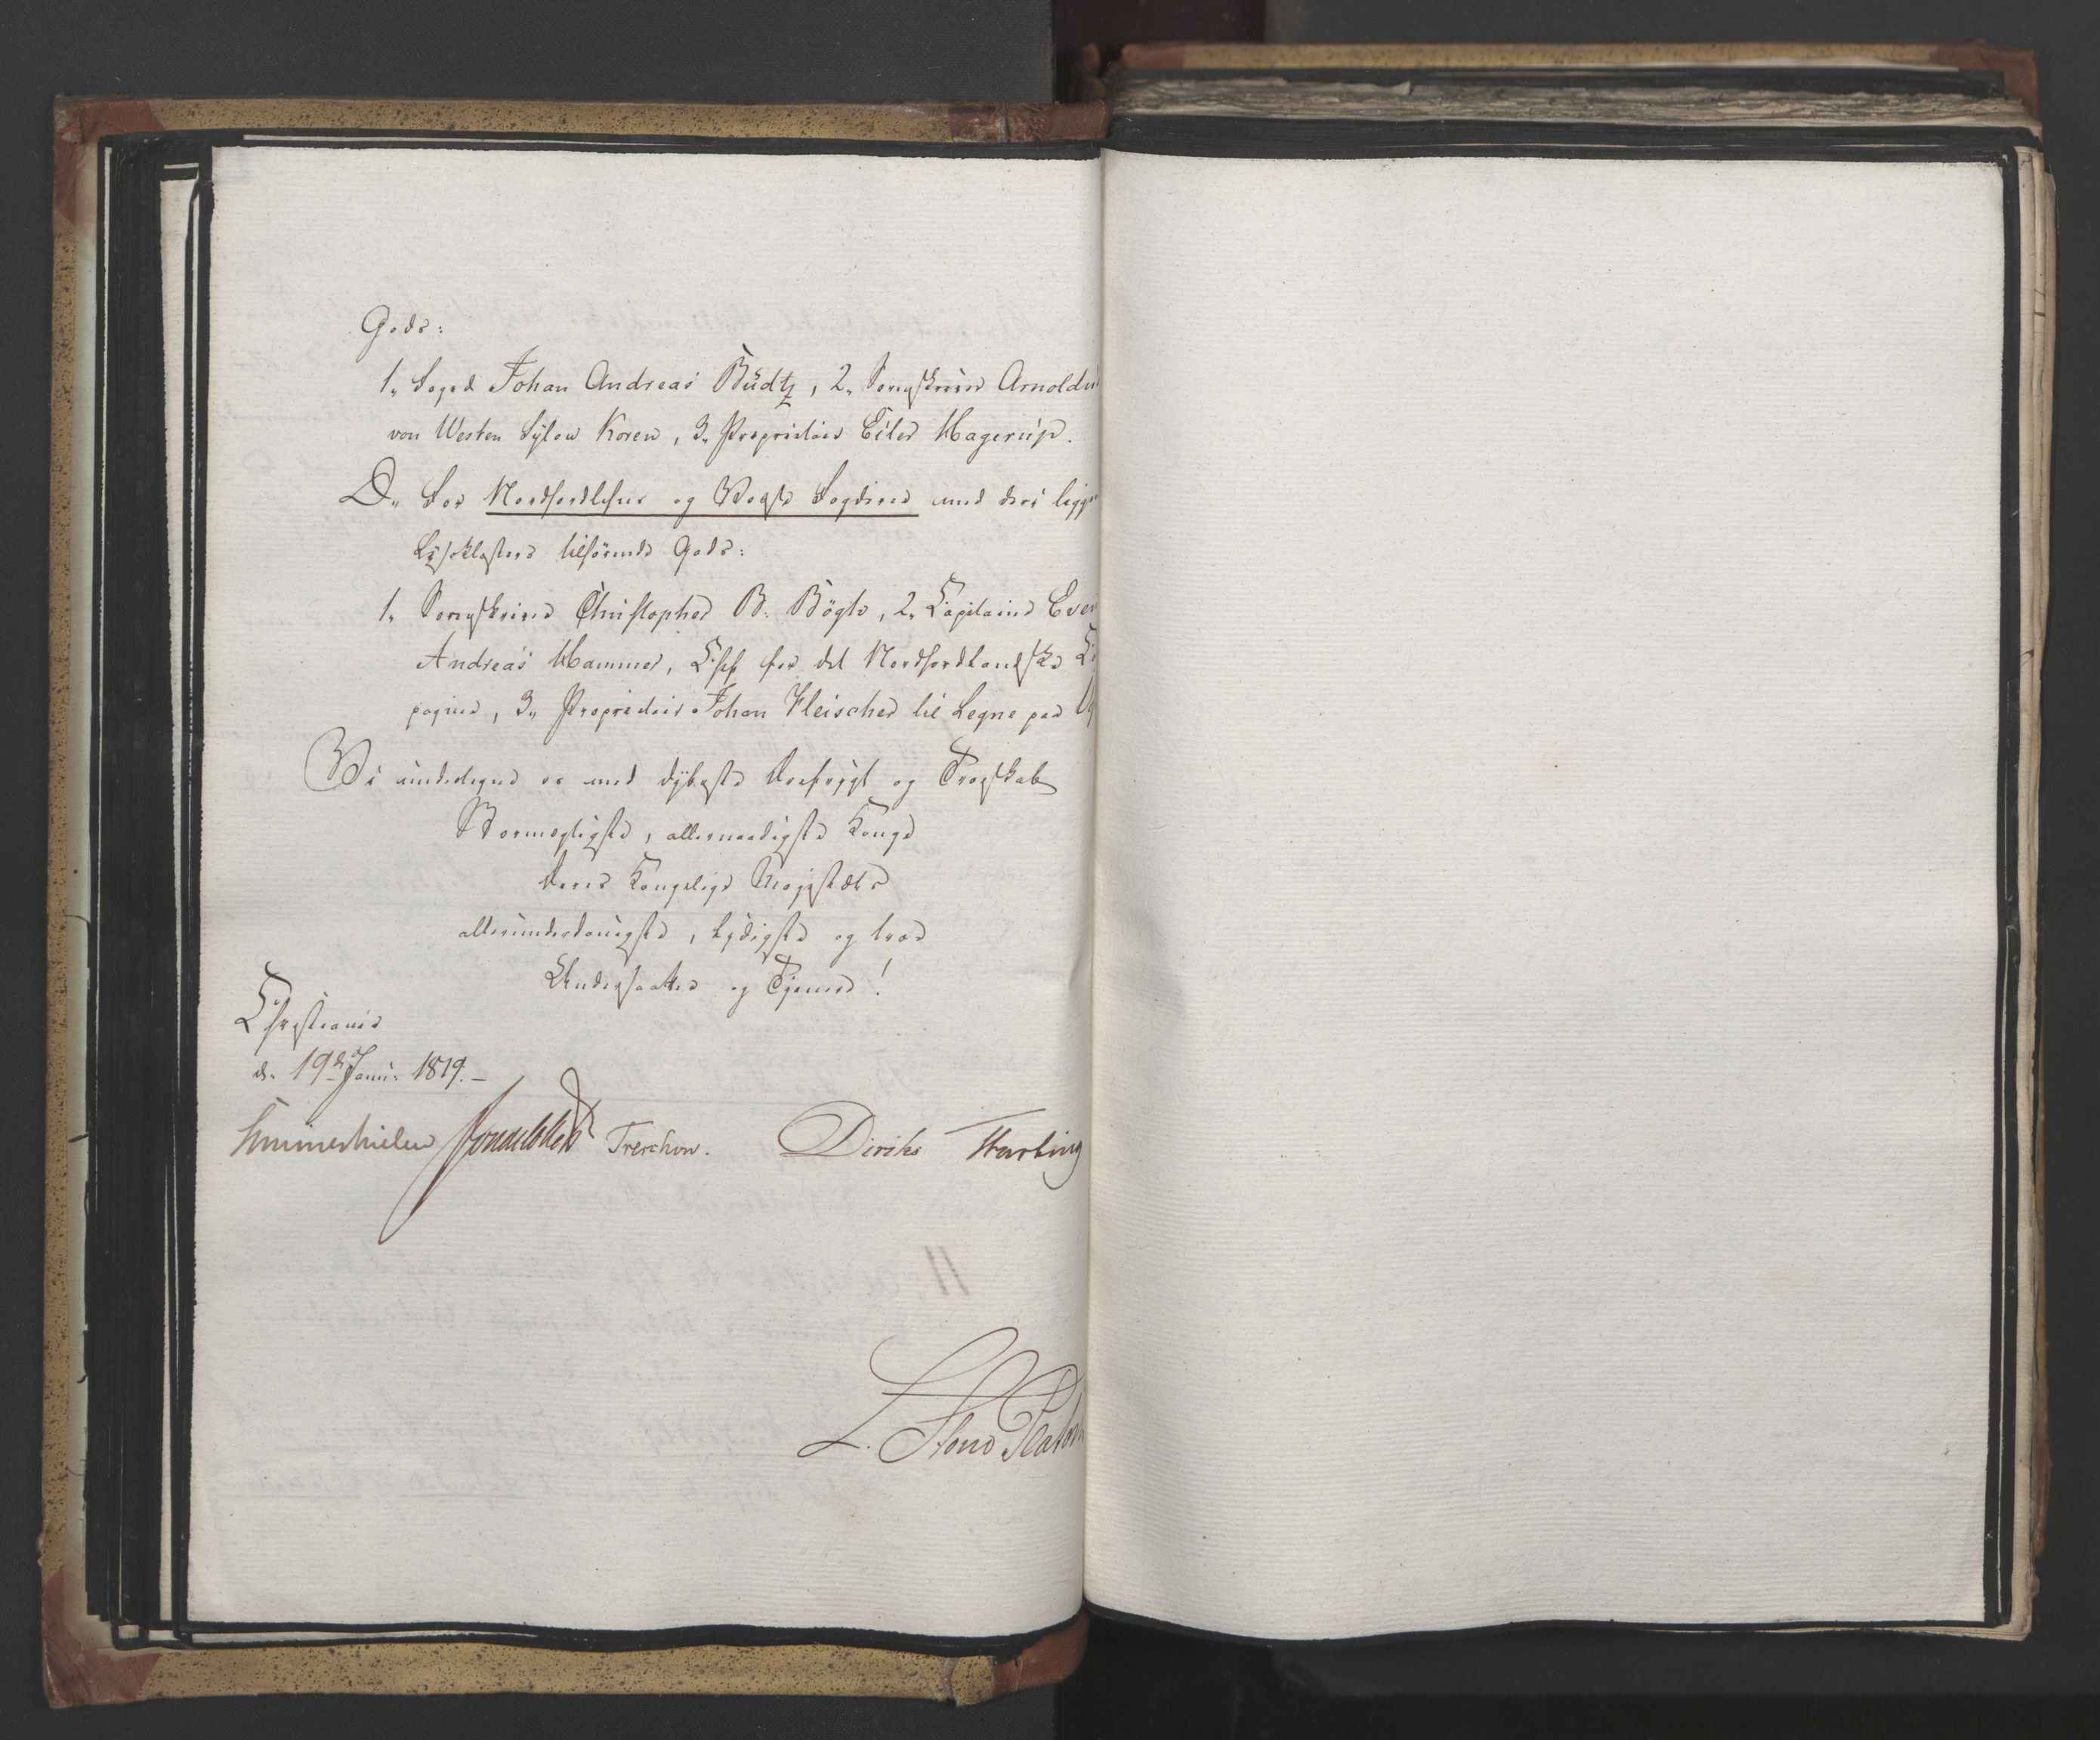 Gods:
1, Foged Johan Andreas Büdtz, 2, Sorenskriver Arnoldu
von Westen Sylow Koren, 3, Proprietair Eiler Hagerup.
D, For Nordhordlehns og Voss Fogderie med deri ligge
Lyseklosters tilhörende Gods:
1, Sorenskriver Christopher B. Bögh, 2, Capitaine Ever
Andreas Hammer, Chef for det Nordhordlandske
pagnie, 3, Proprietair Johan Fleischer til Legne paa
Vi undertegne os med dybeste Ærefrygt og Troskab
Stormægtigste, allernaadigste Konge
Deres Kongelige Majestæts
allerunderdanigste, lydigste og troe
Undersaatter og Tjenere!
Christiania
d. 19de Janu: 1819.
Sommerhielm Treschow. Diriks
L.